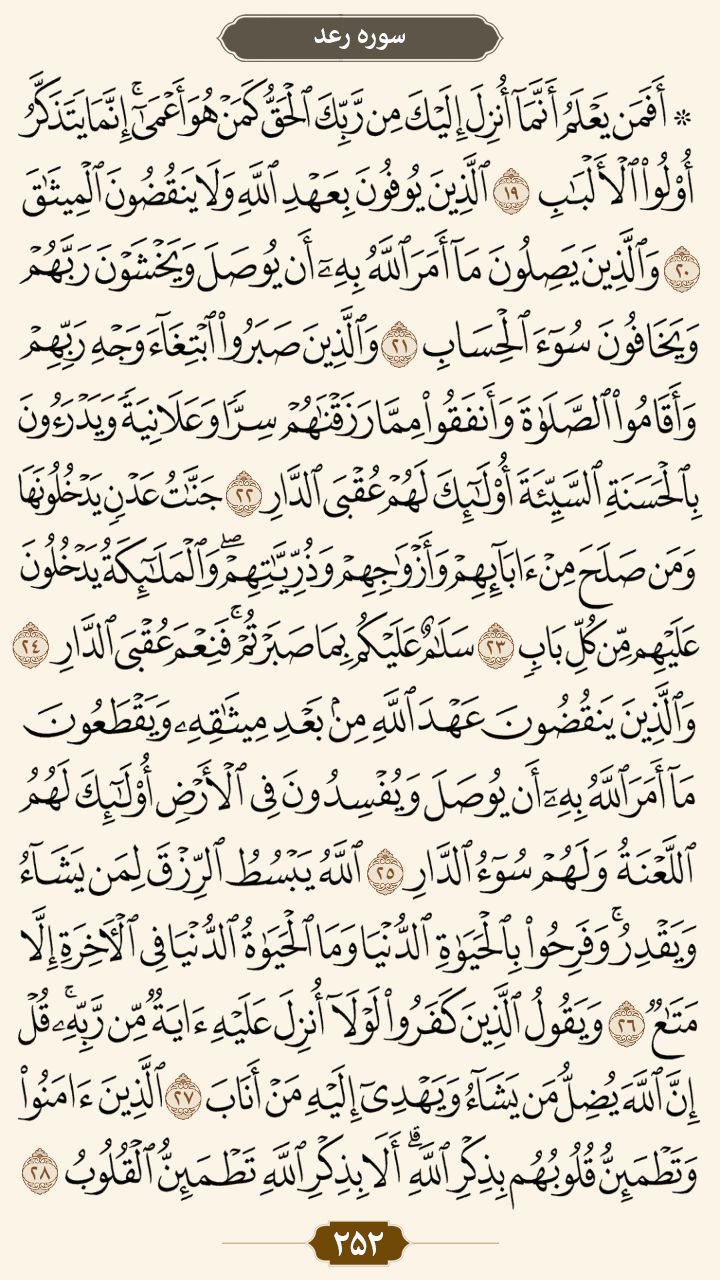 سوره رعد
۞ أَفَمَن يَعْلَمُ أَنَّمَآ أُنزِلَ إِلَيْكَ مِن رَّبِّكَ ٱلْحَقُّ كَمَنْ هُوَ أَعْمَىٰٓ ۚ إِنَّمَا يَتَذَكَّرُ
أُو۟لُوا۟ ٱلْأَلْبَـٰبِ ١٩ ٱلَّذِينَ يُوفُونَ بِعَهْدِ ٱللَّهِ وَلَا يَنقُضُونَ ٱلْمِيثَـٰقَ
٢٠ وَٱلَّذِينَ يَصِلُونَ مَآ أَمَرَ ٱللَّهُ بِهِۦٓ أَن يُوصَلَ وَيَخْشَوْنَ رَبَّهُمْ
وَيَخَافُونَ سُوٓءَ ٱلْحِسَابِ ٢١ وَٱلَّذِينَ صَبَرُوا۟ ٱبْتِغَآءَ وَجْهِ رَبِّهِمْ
وَأَقَامُوا۟ ٱلصَّلَوٰةَ وَأَنفَقُوا۟ مِمَّا رَزَقْنَـٰهُمْ سِرًّا وَعَلَانِيَةً وَيَدْرَءُونَ
بِٱلْحَسَنَةِ ٱلسَّيِّئَةَ أُو۟لَـٰٓئِكَ لَهُمْ عُقْبَى ٱلدَّارِ ٢٢ جَنَّـٰتُ عَدْنٍ يَدْخُلُونَهَا
وَمَن صَلَحَ مِنْ ءَابَآئِهِمْ وَأَزْوَٰجِهِمْ وَذُرِّيَّـٰتِهِمْ ۖ وَٱلْمَلَـٰٓئِكَةُ يَدْخُلُونَ
عَلَيْهِم مِّن كُلِّ بَابٍ ٢٣ سَلَـٰمٌ عَلَيْكُم بِمَا صَبَرْتُمْ ۚ فَنِعْمَ عُقْبَى ٱلدَّارِ ٢٤
وَٱلَّذِينَ يَنقُضُونَ عَهْدَ ٱللَّهِ مِنۢ بَعْدِ مِيثَـٰقِهِۦ وَيَقْطَعُونَ
مَآ أَمَرَ ٱللَّهُ بِهِۦٓ أَن يُوصَلَ وَيُفْسِدُونَ فِى ٱلْأَرْضِ أُو۟لَـٰٓئِكَ لَهُمُ
ٱللَّعْنَةُ وَلَهُمْ سُوٓءُ ٱلدَّارِ ٢٥ ٱللَّهُ يَبْسُطُ ٱلرِّزْقَ لِمَن يَشَآءُ
وَيَقْدِرُ ۚ وَفَرِحُوا۟ بِٱلْحَيَوٰةِ ٱلدُّنْيَا وَمَا ٱلْحَيَوٰةُ ٱلدُّنْيَا فِى ٱلْـَٔاخِرَةِ إِلَّا
مَتَـٰعٌ ٢٦ وَيَقُولُ ٱلَّذِينَ كَفَرُوا۟ لَوْلَآ أُنزِلَ عَلَيْهِ ءَايَةٌ مِّن رَّبِّهِۦ ۗ قُلْ
إِنَّ ٱللَّهَ يُضِلُّ مَن يَشَآءُ وَيَهْدِىٓ إِلَيْهِ مَنْ أَنَابَ ٢٧ ٱلَّذِينَ ءَامَنُوا۟
وَتَطْمَئِنُّ قُلُوبُهُم بِذِكْرِ ٱللَّهِ ۗ أَلَا بِذِكْرِ ٱللَّهِ تَطْمَئِنُّ ٱلْقُلُوبُ ٢٨
۲۵۲